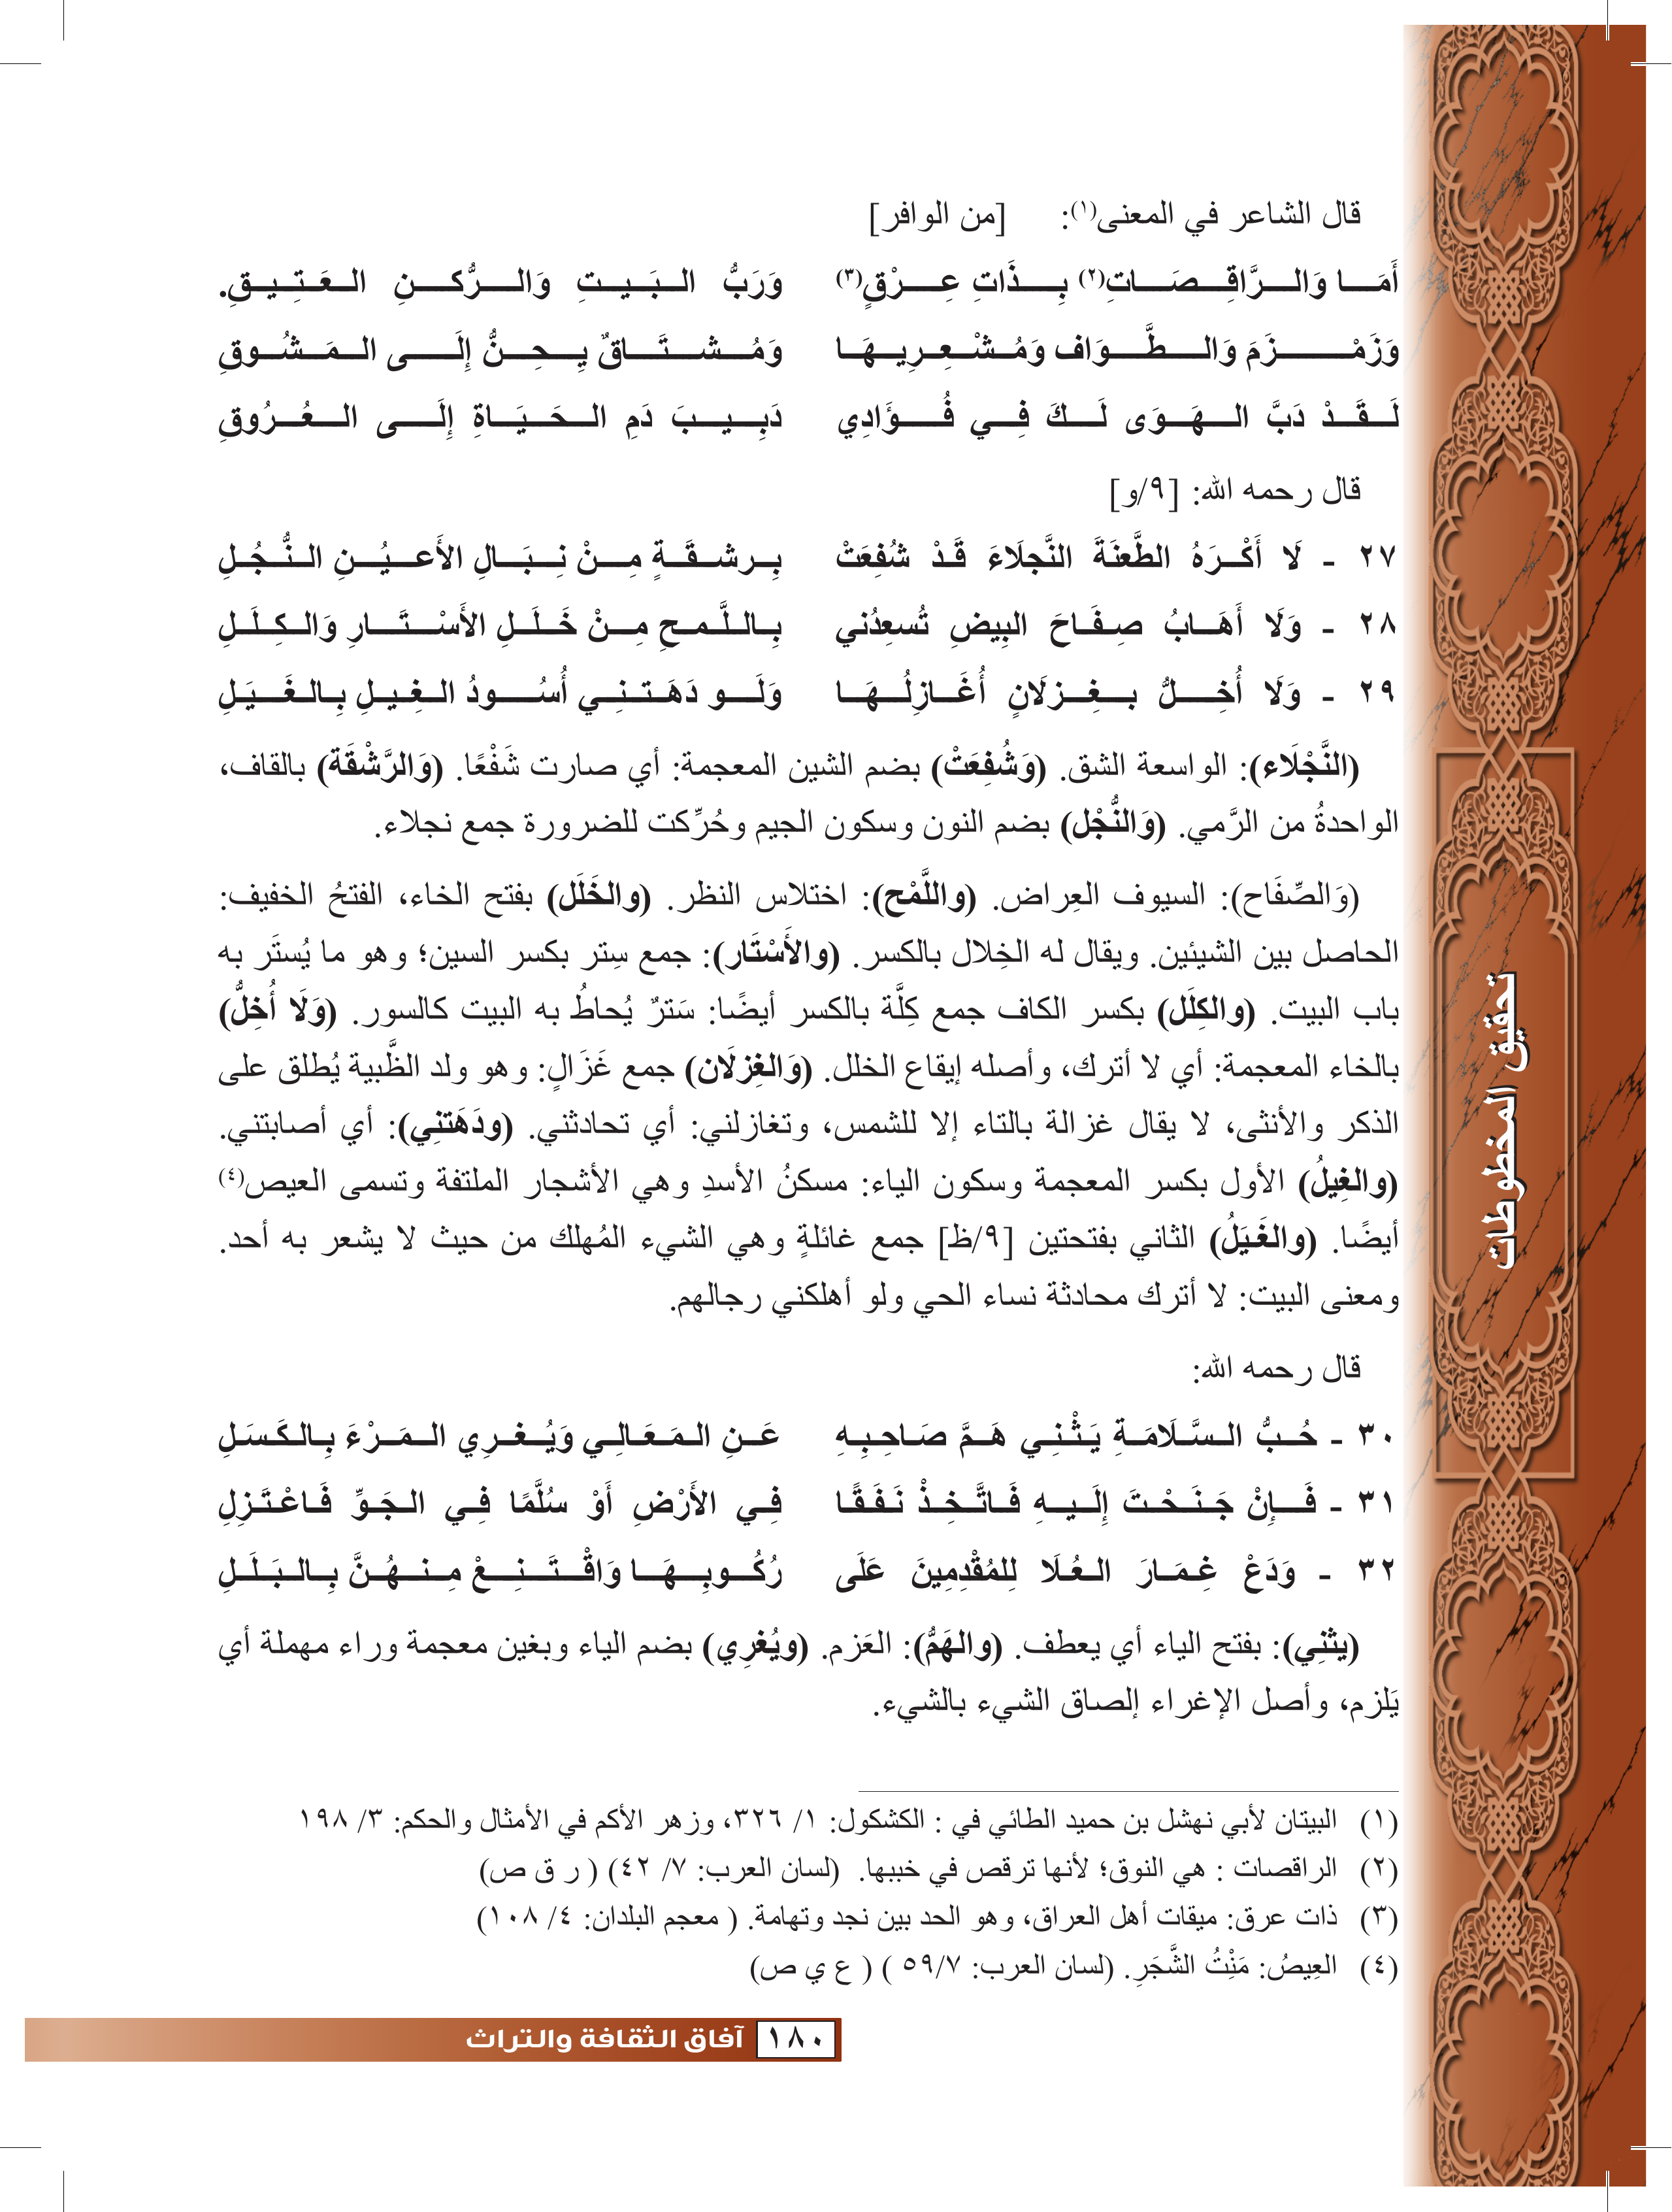 قال الشاعر في المعنى(١): [من الوافر]
أَمَا وَالرَّاقِصَاتِ(٢) بِذَاتِ عِرْقٍ(٣) وَرَبُّ البَيتِ وَالرُّكنِ العَتِيقِ.
وَزَمْزَمَ وَالطَّوَاف وَمُشْعِرِيهَا وَمُشتَاقٌ يِحِنُّ إِلَى المَشُوقِ
لَقَدْ دَبَّ الهَوَى لَكَ فِي فُؤَادِي دَبِيبَ دَمِ الحَيَاةِ إِلَى العُرُوقِ
قال رحمه الله: [٩/و]
٢٧ - لَا أَكْرَهُ الطَّعنَةَ النَّجلَاءَ قَدْ شُفِعَتْ بِرشقَةٍ مِنْ نِبَالِ الأَعيُنِ النُّجُلِ
٢٨ - وَلَا أَهَابُ صِفَاحَ البِيضِ تُسعِدُني بِاللَّمحِ مِنْ خَلَلِ الأَسْتَارِ وَالكِلَلِ
٢٩ - وَلَا أُخِلُّ بغِزلَانٍ أُغَازِلُهَا وَلَو دَهَتنِي أُسُودُ الغِيلِ بِالغَيَلِ
(النَّجْلَاء): الواسعة الشق. (وَشُفِعَتْ) بضم الشين المعجمة: أي صارت شَفْعًا. (وَالرَّشْقَة) بالقاف،
الواحدةُ من الرَّمي. (وَالنُّجْل) بضم النون وسكون الجيم وحُرِّكت للضرورة جمع نجلاء.
(وَالصِّفَاح): السيوف العِراض. (واللَّمْح): اختلاس النظر. (والخَلَل) بفتح الخاء، الفتحُ الخفيف:
الحاصل بين الشيئين. ويقال له الخِلال بالكسر. (والأَسْتَار): جمع سِتر بكسر السين؛ وهو ما يُستَر به
باب البيت. (والكِلَل) بكسر الكاف جمع كِلَّة بالكسر أيضًا: سَترٌ يُحاطُ به البيت كالسور. (وَلَا أُخِلُّ)
بالخاء المعجمة: أي لا أترك، وأصله إيقاع الخلل. (وَالغِزلَان) جمع غَزَالٍ: وهو ولد الظَّبية يُطلق على
الذكر والأنثى، لا يقال غزالة بالتاء إلا للشمس، وتغازلني: أي تحادثني. (ودَهَتنِي): أي أصابتني.
(والغِيلُ) الأول بكسر المعجمة وسكون الياء: مسكنُ الأسدِ وهي الأشجار الملتفة وتسمى العيص(٤)
أيضًا. (والغَيَلُ) الثاني بفتحتين [٩/ظ] جمع غائلةٍ وهي الشيء المُهلك من حيث لا يشعر به أحد.
ومعنى البيت: لا أترك محادثة نساء الحي ولو أهلكني رجالهم.
قال رحمه الله:
٣٠ - حُبُّ السَّلَامَةِ يَثْنِي هَمَّ صَاحِبِهِ عَنِ المَعَالِي وَيُغرِي المَرْءَ بِالكَسَلِ
٣١ - فَإِنْ جَنَحْتَ إِلَيهِ فَاتَّخِذْ نَفَقًا فِي الأَرْضِ أَوْ سُلَّمًا فِي الجَوِّ فَاعْتَزِلِ
٣٢ - وَدَعْ غِمَارَ العُلَا لِلمُقْدِمِينَ عَلَى رُكُوبِهَا وَاقْتَنِعْ مِنهُنَّ بِالبَلَلِ
(يثنِي): بفتح الياء أي يعطف. (والهَمُّ): العَزم. (ويُغرِي) بضم الياء وبغين معجمة وراء مهملة أي
يَلزم، وأصل الإغراء إلصاق الشيء بالشيء.
(١) البيتان لأبي نهشل بن حميد الطائي في : الكشكول: ١/ ٣٢٦، وزهر الأكم في الأمثال والحكم: ٣/ ١٩٨
(٢) الراقصات : هي النوق؛ لأنها ترقص في خببها. (لسان العرب: ٧/ ٤٢) ( ر ق ص)
(٣) ذات عرق: ميقات أهل العراق، وهو الحد بين نجد وتهامة. ( معجم البلدان: ٤/ ١٠٨)
(٤) العِيصُ: مَنْبِتُ الشَّجَرِ. (لسان العرب: ٥٩/٧ ) ( ع ي ص)
١٨٠ آفاق الثقافة والتراث
تحقيق المخطوطات